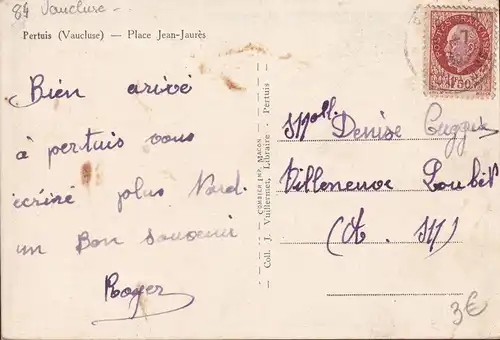 84 Vaucluse -
Pertuis (Vaucluse) — Place Jean-Jaurès
Bien arivé
à pertuis vous
écriré plus Nard.
un Bon souvenir
Royer
COMBIER IMP. MACON
Coll. J. Vuillermet, Libraire - Pertuis
Mlle Denise
Villeneuve Loubet
(A. M)
3€